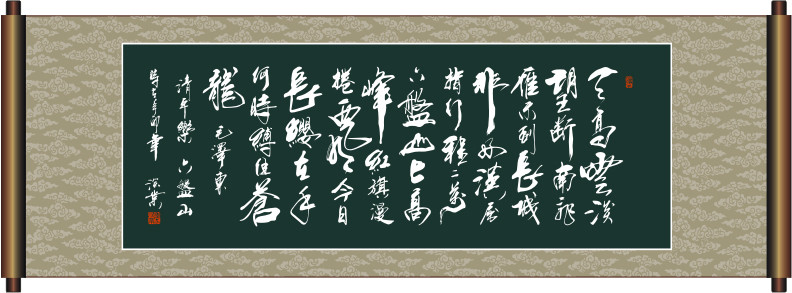 天高雲淡
望断南飛
雁不到長城
非好漢屈
指行程二萬
六盤山上高
峰紅旗漫
捲西風今日
長纓在手
何時縛住蒼
龍 毛澤東
清平樂六盤山
時在辛卯年